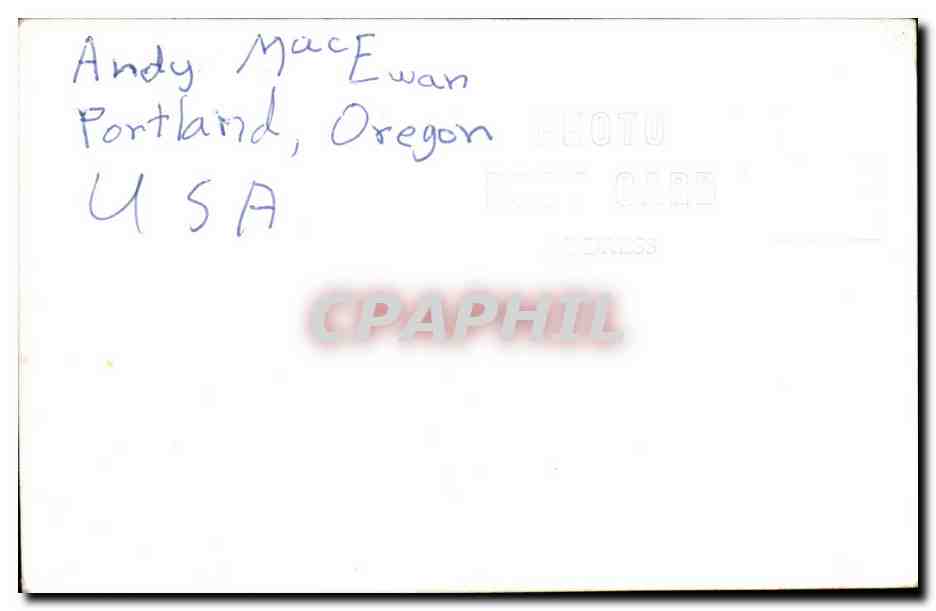 Andy MacEwan
Portland, Oregon
USA
PHOTO
POST CARD
ADDRESS
CPAPHIL